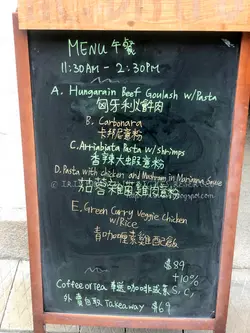 MENU 午餐
11:30AM - 2:30PM
A. Hungarain Beef Goulash w/Pasta
匈牙利牛肉
B. Carbonara
卡邦尼意粉
C. Arriabiata Pasta w/Shrimps
香辣大蝦意粉
D. Pasta with chicken and Mushroom in Marinara Sauce
茄蓉雜菌雞肉意粉
E. Green Curry Veggie Chicken
w/Rice
青咖喱素雞配飯
$89
+10%
Coffee or Tea 奉送咖啡或茶 S.C.
外賣自取 Takeaway $69